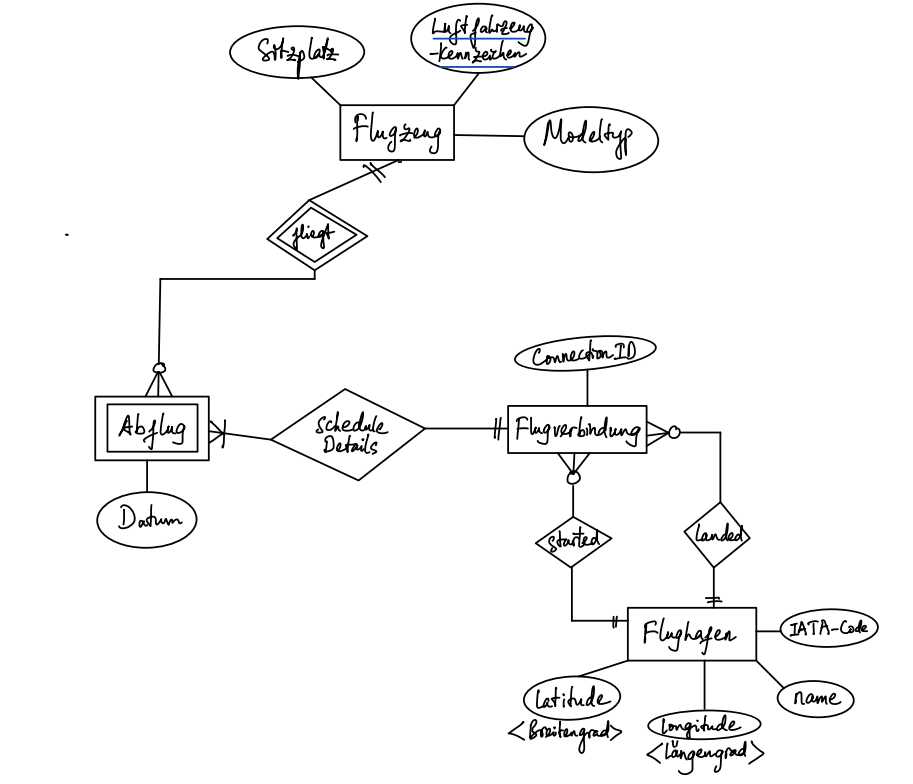 Sitzplatz
Luftfahrzeug
-Kennzeichen
Flugzeug
Modeltyp
fliegt
Connection ID
Abflug
Schedule
Details
Flugverbindung
Datum
started
landed
Flughafen
IATA-Code
Latitude
<Breitengrad>
name
Longitude
<Längengrad>